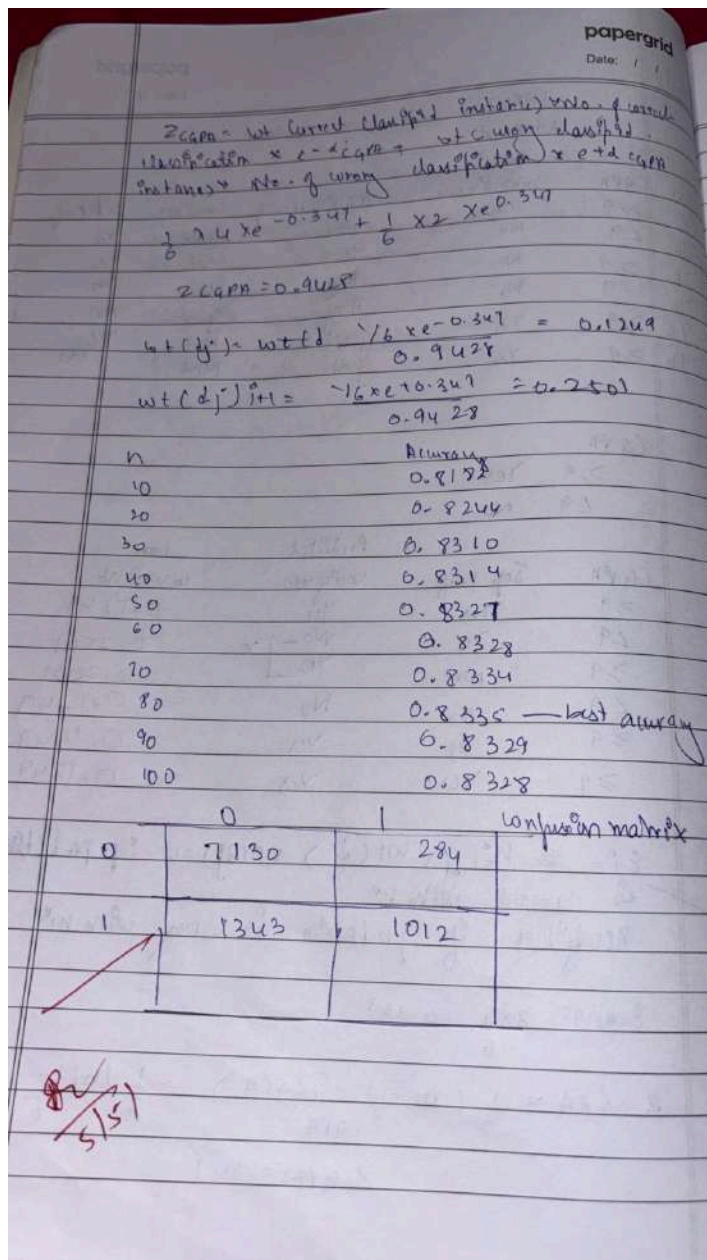 papergrid
Date: / /
ZCGPA = wt Correct classified instance) x No. of correct
classification x e-αCGPA + wt ( wrong classified
instances x No. of wrong classification x e+α CGPA
1/6 x 4 xe -0.347 + 1/6 x2 xe 0.347
ZCGPA = 0.9428
wt (dj) = wt (d 1/6 xe-0.347 / 0.9428 = 0.1249
wt (dj) i+1 = 1/6 xe+0.347 / 0.9428 = 0.2501
n Accuracy
10 0.8182
20 0.8244
30 0.8310
40 0.8314
50 0.8327
60 0.8328
70 0.8334
80 0.8335 — best accuracy
90 0.8329
100 0.8328
0 1 confusion matrix
0 7130 284
1 1343 1012
5/5)